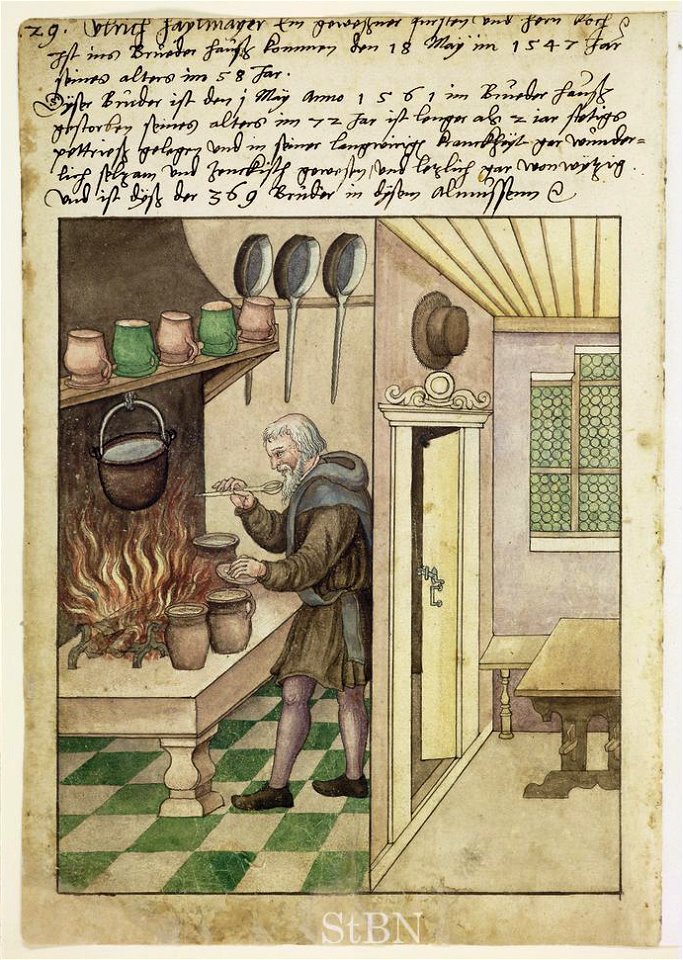 29. Ulrich Haylmayer Ein geweßner fursten und hern koch
Ist ins Brueder hauß kommen den 18 May im 1547 Jar
seines alters im 58 Jar.
Dyser Bruder ist den 1 May Anno 1561 im Brueder hauß
gestorben seines alters im 72 Jar ist lenger als 2 iar stetigs
pettrieß gelegen und in seiner langwirige kranckheyt gar wunder-
lich selzam und zenckisch gewesen, und letzlich gar wonwyzig.
Und ist dyß der 369 Bruder in dysem Almussenn
StBN